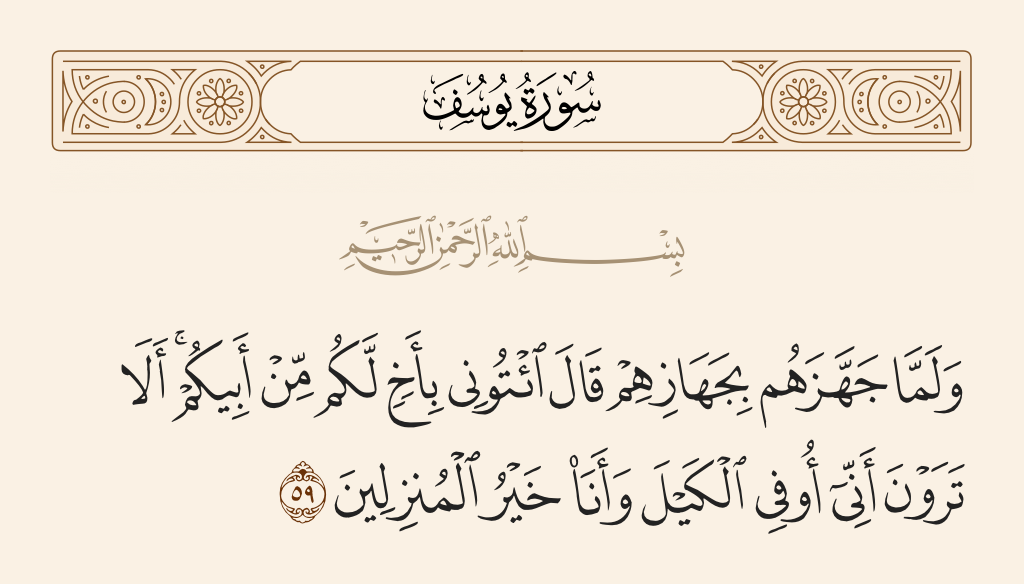 سُورَةُ يُوسُفَ
بِسْمِ ٱللَّهِ ٱلرَّحْمَٰنِ ٱلرَّحِيمِ
وَلَمَّا جَهَّزَهُم بِجَهَازِهِمْ قَالَ ٱئْتُونِى بِأَخٍ لَّكُم مِّنْ أَبِيكُمْ ۚ أَلَا
تَرَوْنَ أَنِّىٓ أُوفِى ٱلْكَيْلَ وَأَنَا۠ خَيْرُ ٱلْمُنزِلِينَ ٥٩